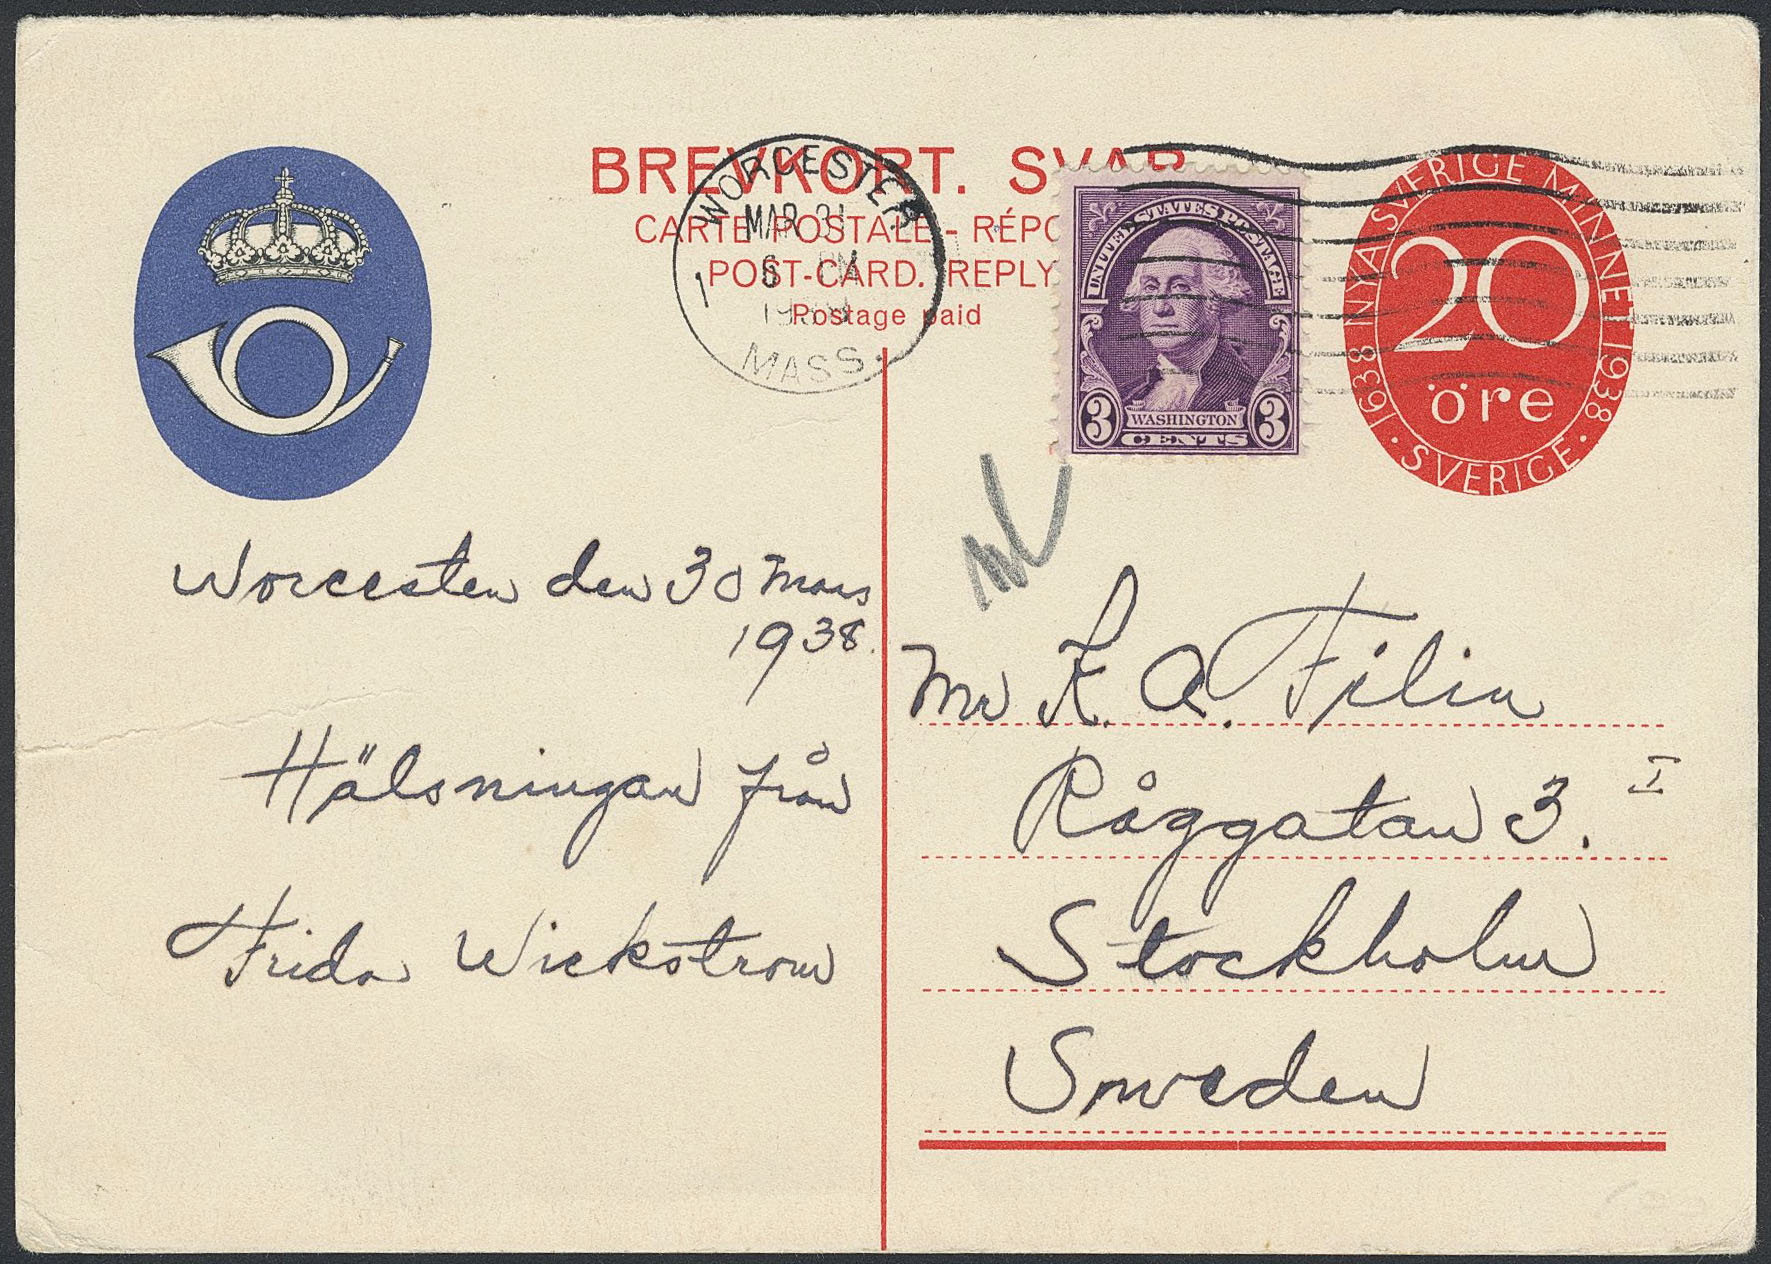 BREVKORT. SVAR
CARTE POSTALE - RÉPO
POST-CARD. REPLY
Postage paid
WORCESTER
MAR 31
6 PM
1
MASS.
UNITED STATES POSTAGE
3 WASHINGTON 3
CENTS
1638 NYASVERIGE MINNET 1938
20
öre
· SVERIGE ·
Worcester den 30 Mars
1938.
Hälsningar från
Frida Wickstrom
Mr K. A. Filin
Råggatan 3. I
Stockholm
Sweden